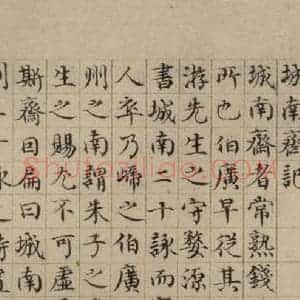 城南齋記
城南齋者常熟錢
所也伯廣早從其
游先生之守婺源
書城南二十詠而
人卒乃歸之伯廣
州之南謂朱子之
生之賜尤不可虛
斯齋曰扁曰城南
二十詠之詩